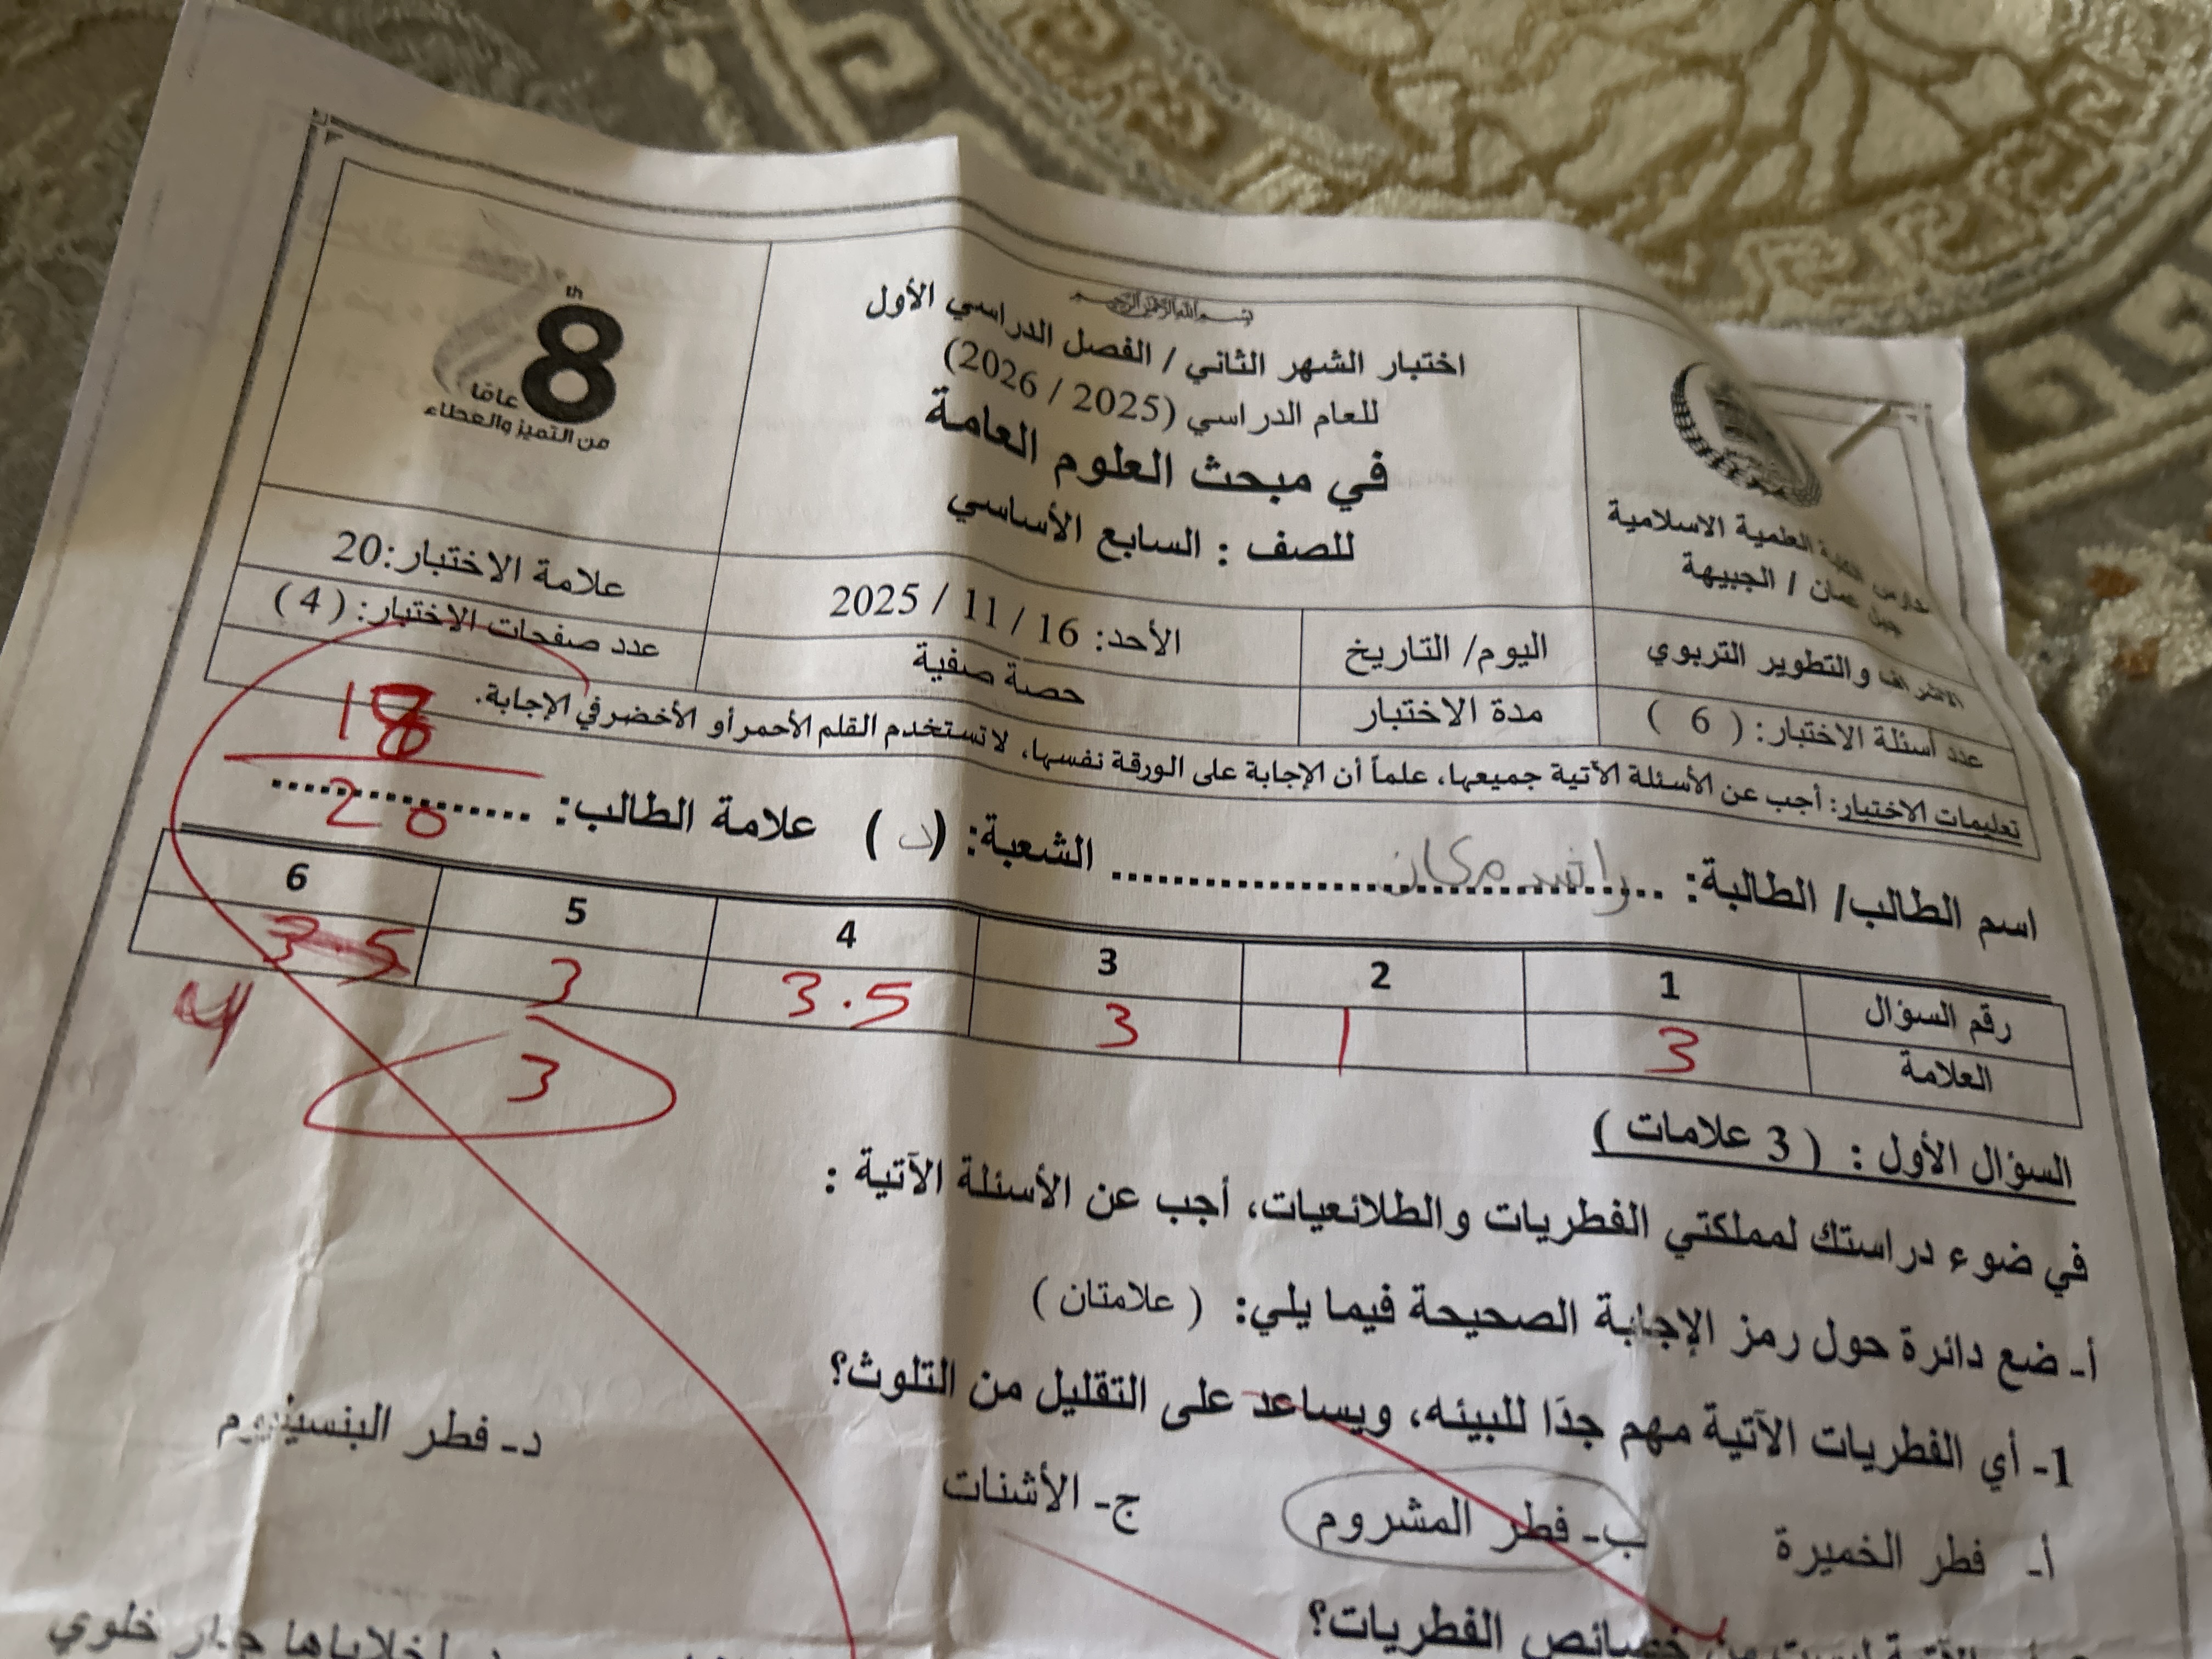 بسم الله الرحمن الرحيم
اختبار الشهر الثاني / الفصل الدراسي الأول
للعام الدراسي (2025 / 2026)
في مبحث العلوم العامة
للصف : السابع الأساسي
8th
عامًا
من التميز والعطاء
مدارس الكلية العلمية الاسلامية
جبل عمان / الجبيهة
الاشراف والتطوير التربوي
اليوم/ التاريخ
الأحد: 16 / 11 / 2025
علامة الاختبار:20
عدد أسئلة الاختبار: ( 6 )
مدة الاختبار
حصة صفية
عدد صفحات الاختبار: ( 4 )
تعليمات الاختبار: أجب عن الأسئلة الآتية جميعها، علماً أن الإجابة على الورقة نفسها، لا تستخدم القلم الأحمر أو الأخضر في الإجابة.
اسم الطالب/ الطالبة: ........ الشعبة: (د) علامة الطالب: ........
18
20
رقم السؤال 1 2 3 4 5 6
العلامة 3 1 3 3.5 3 3.5
4
3
السؤال الأول : ( 3 علامات )
في ضوء دراستك لمملكتي الفطريات والطلائعيات، أجب عن الأسئلة الآتية :
أ- ضع دائرة حول رمز الإجابة الصحيحة فيما يلي: ( علامتان )
1- أي الفطريات الآتية مهم جدًا للبيئه، ويساعد على التقليل من التلوث؟
أ- فطر الخميرة ب- فطر المشروم ج- الأشنات د- فطر البنسيليوم
الآتية ليست من خصائص الفطريات؟
لخلاياها جدار خلوي